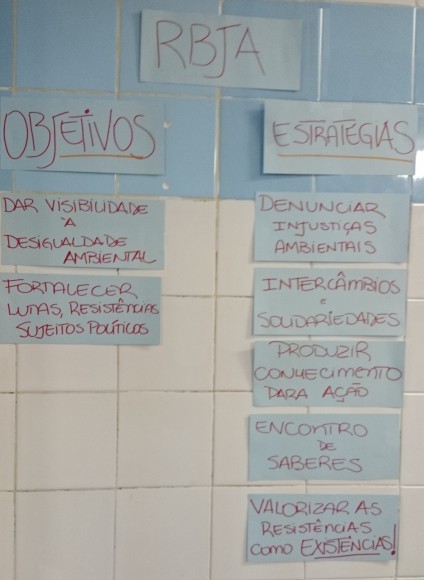 RBJA
OBJETIVOS
DAR VISIBILIDADE
À
DESIGUALDADE
AMBIENTAL
FORTALECER
LUTAS, RESISTÊNCIAS
SUJEITOS POLÍTICOS
ESTRATÉGIAS
DENUNCIAR
INJUSTIÇAS
AMBIENTAIS
INTERCÂMBIOS
e
SOLIDARIEDADES
PRODUZIR
CONHECIMENTO
PARA AÇÃO
ENCONTRO
DE
SABERES
VALORIZAR AS
RESISTÊNCIAS
COMO EXISTÊNCIAS!